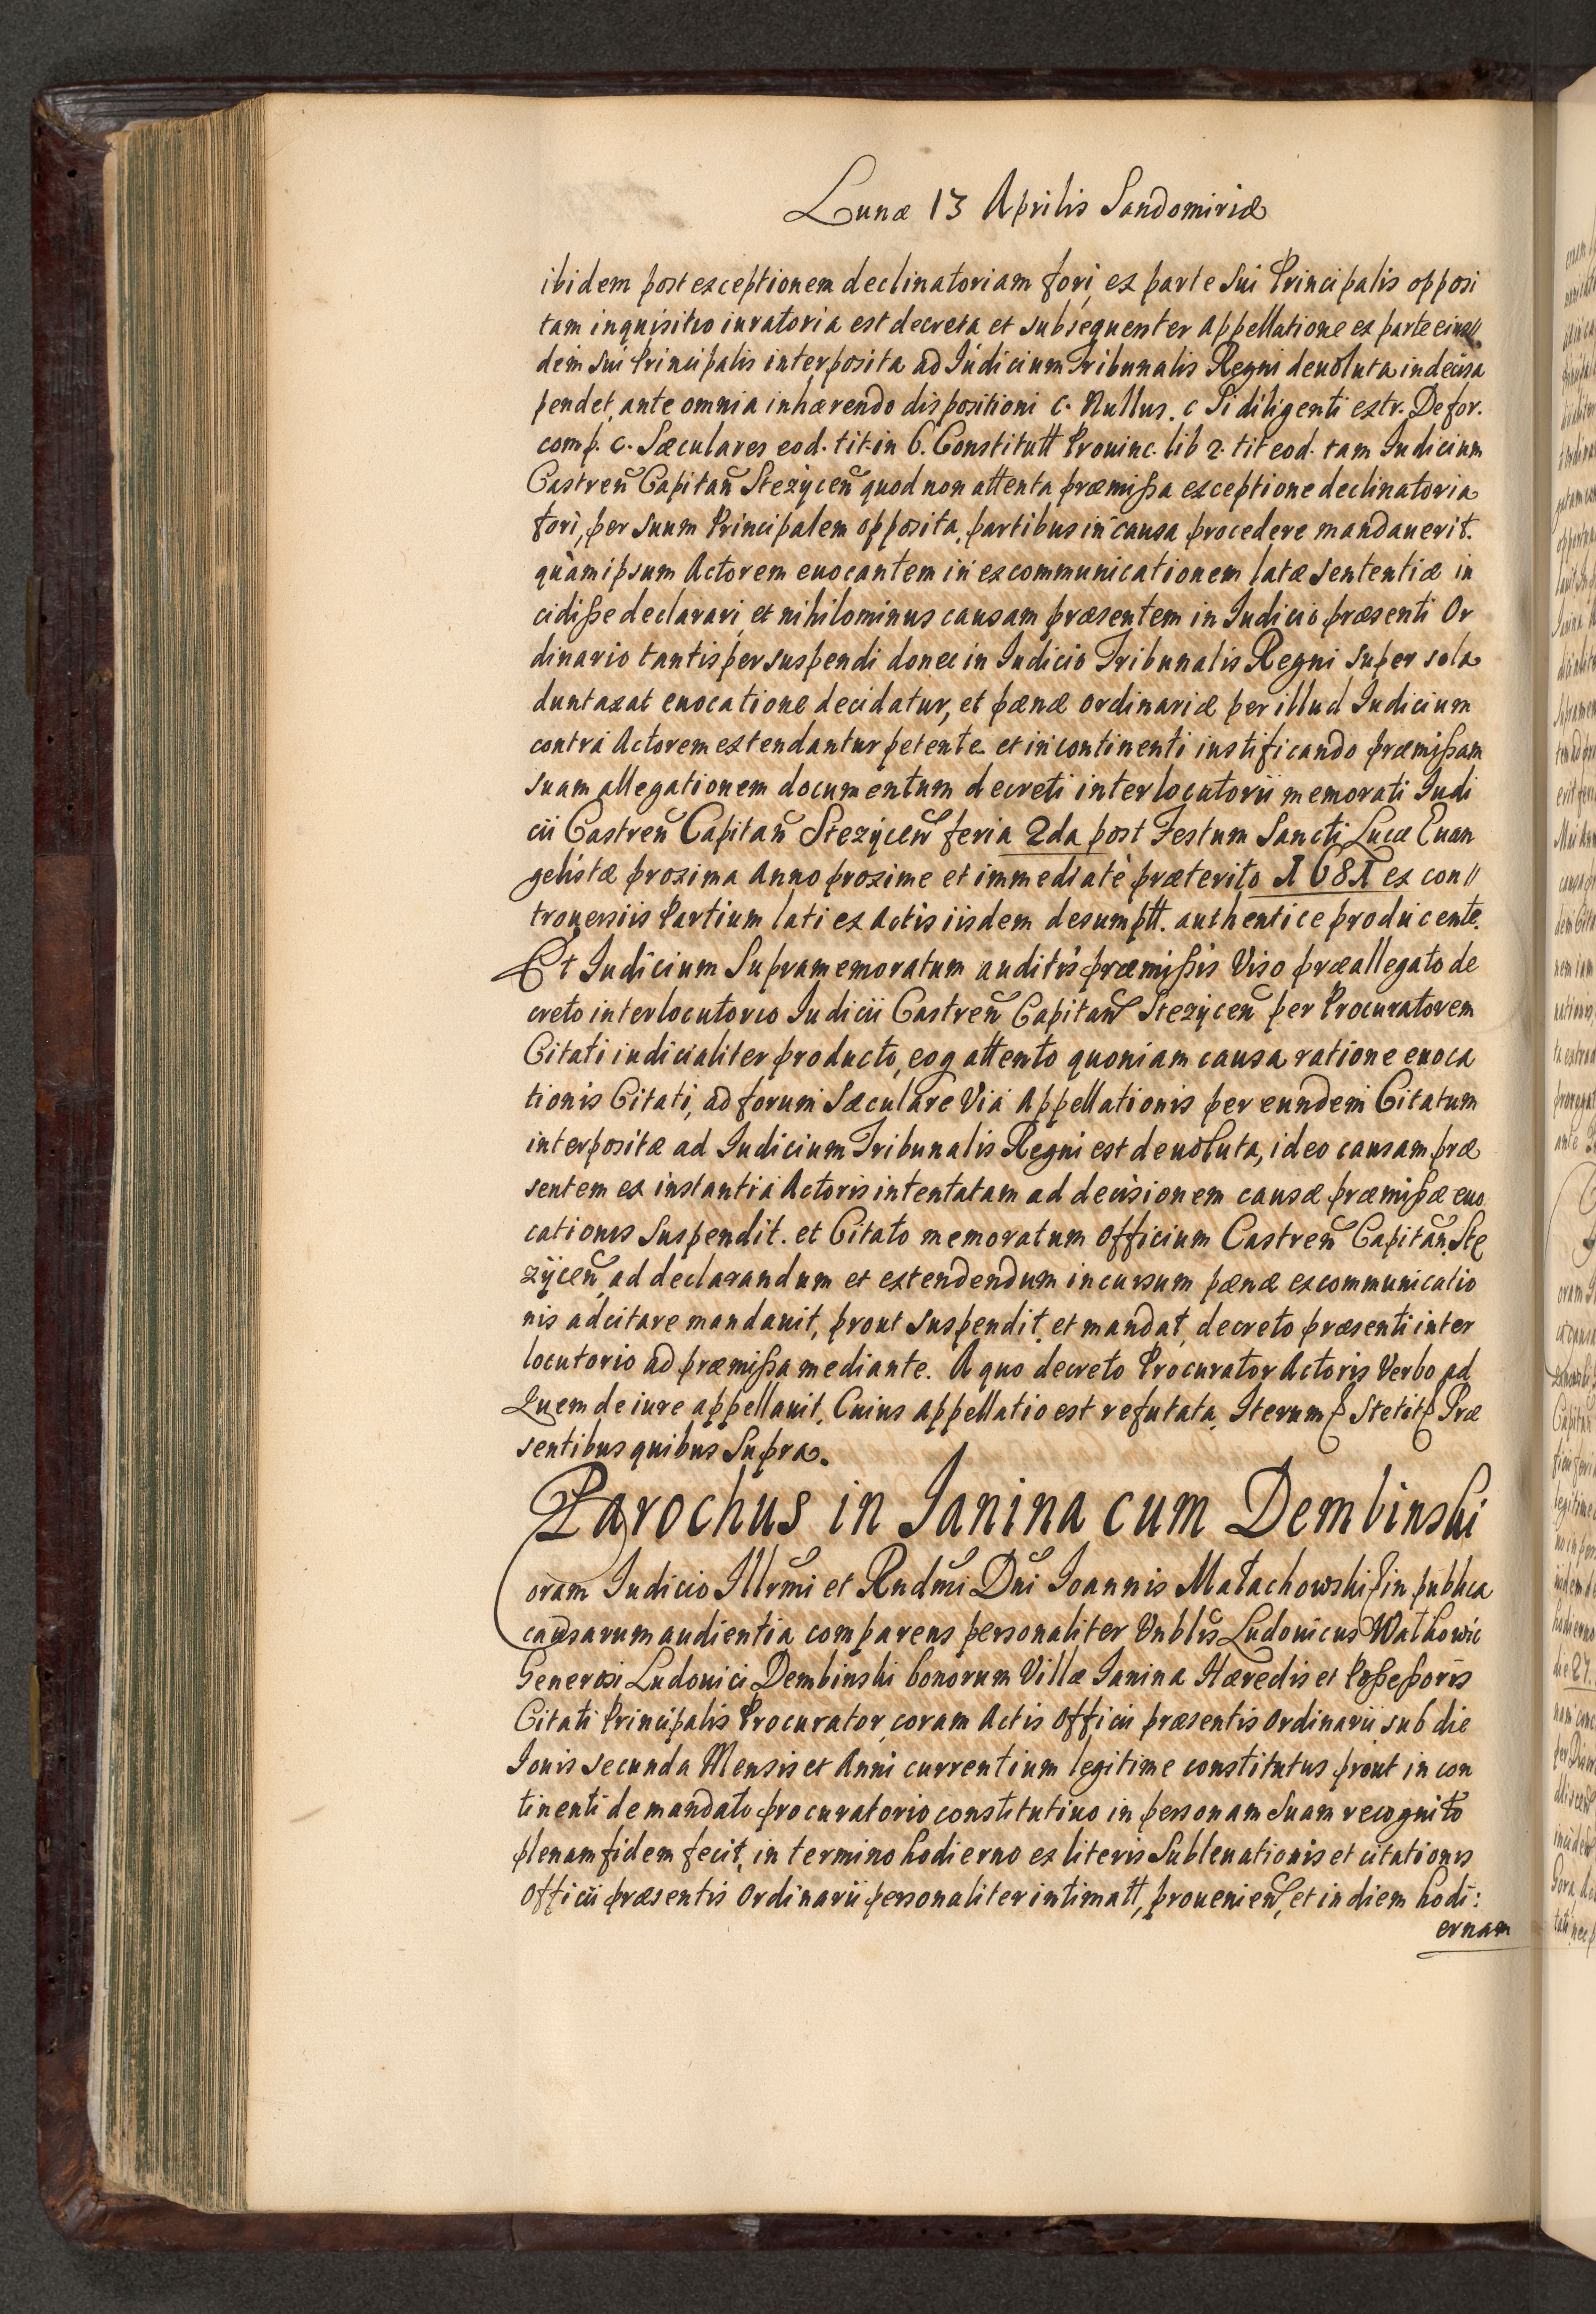 Lunæ 13 Aprilis Sandomiriæ
ibidem post exceptionem declinatoriam fori, ex parte sui Principalis opposi
tam inquisitio iuratoria est decreta et subsequenter Appellatione ex parte eius//
dem sui Principalis interposita ad Iudicium Tribunalis Regni deuoluta indecisa
pendet, ante omnia inhærendo dispositioni c. Nullus. c Si diligenti extr. De for.
comp. c. Sæculares eod. tit. in 6. Constitutt Prouinc. lib 2. tit eod. tam Iudicium
Castren̄ Capitan̄ Stezÿcen̄ quod non attenta præmißa exceptione declinatoria
fori, per suum Principalem opposita, partibus in causa procedere mandauerit.
quàm ipsum Actorem euocantem in excommunicationem latæ sententiæ in
cidiße declarari, et nihilominus causam præsentem in Iudicio præsenti Or
dinario tantisper suspendi donec in Iudicio Tribunalis Regni super sola
duntaxat euocatione decidatur, et pænæ ordinariæ per illud Iudicium
contra Actorem extendantur petente et in continenti iustificando præmißam
suam allegationem documentum decreti interlocutorii memorati Iudi
cii Castren̄ Capitan̄ Stezÿcen̄ feria 2da post Festum Sancti Lucæ Euan
gelistæ proxima Anno proxime et immediatè præterito 1681 ex con//
trouersiis Partium lati ex Actis iisdem desumptt. authentice producente.
Et Iudicium Supramemoratum auditis præmißis Viso præallegato de
creto interlocutorio Iudicii Castren̄ Capitan̄ Stezÿcen̄ per Procuratorem
Citati iudicialiter producto, eoq attento quoniam causa ratione euoca
tionis Citati, ad forum Sæculare Via Appellationis per eundem Citatum
interpositæ ad Iudicium Tribunalis Regni est deuoluta, ideo causam præ
sentem ex instantia Actoris intentatam ad decisionem causæ præmißæ euo
cationis suspendit. et Citato memoratum Officium Castren̄ Capitan̄ Ste
zÿcen̄, ad declarandum et extendendum incursum pænæ excommunicatio
nis adcitare mandauit, prout suspendit, et mandat, decreto præsenti inter
locutorio ad præmißa mediante. A quo decreto Procurator Actoris Verbo ad
Quem de iure appellauit, Cuius appellatio est refutata, Iterum Stetit Præ
sentibus quibus Supra.
Parochus in Ianina cum Dembinski
Coram Iudicio Illrmi et Rndmi Dni Ioannis Małachowski in publica
causarum audientia comparens personaliter Vnblis Ludouicus Walkowic
Generosi Ludouici Dembinski bonorum Villæ Ianina Hæredis et Poßeßoris
Citati Principalis Procurator, coram Actis Officii præsentis Ordinarii sub die
Iouis secunda Mensis et Anni currentium legitime constitutus prout in con
tinenti de mandato procuratorio constitutiuo in personam suam recognito
plenam fidem fecit, in termino hodierno ex literis Subleuationis et citationis
Officii præsentis Ordinarii personaliter intimatt, prouenien̄, et in diem hodi:
ernam